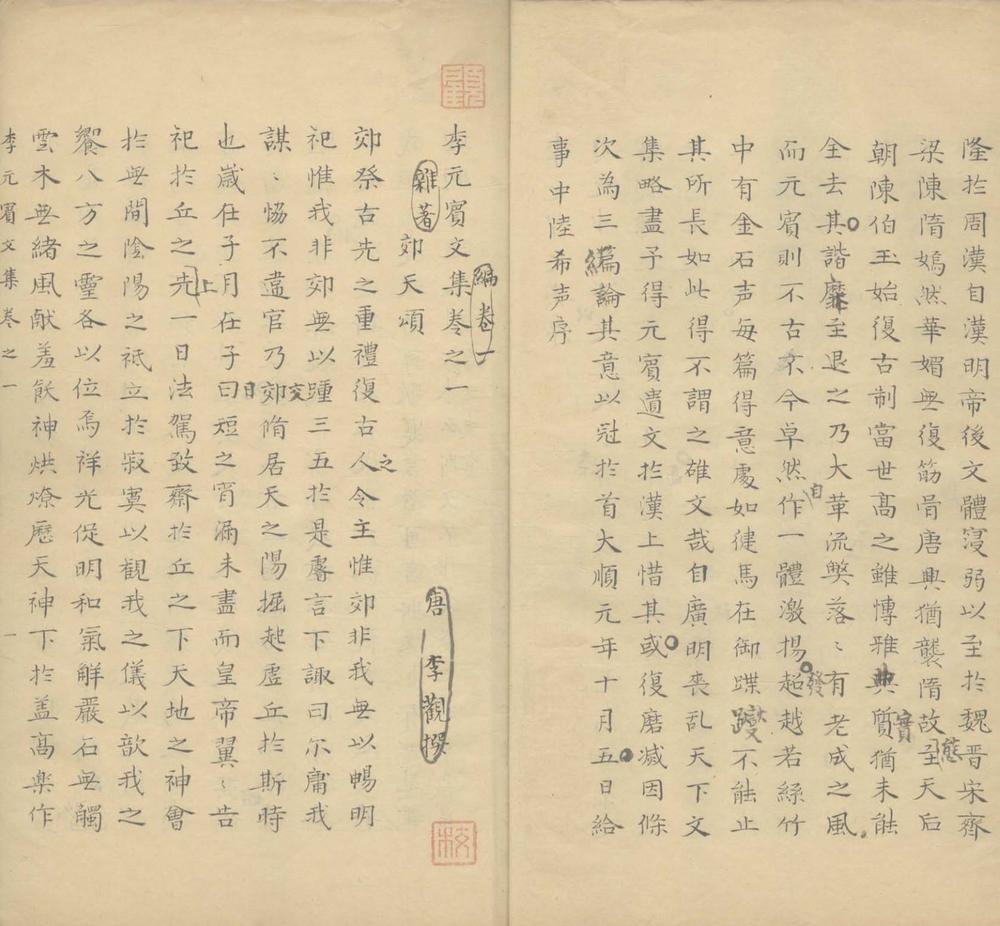 隆於周漢自漢明帝後文體寖弱以至於魏晋宋齊
梁陳隋嫣然華媚無復筋骨唐興猶襲隋故至天后
態
朝陳伯玉始復古制當世高之雖博雅典質猶未能
實
全去其諧靡至退之乃大革流獘落〻有老成之風
而元賓則不古不今卓然作一體激揚超越若絲竹
自
發
中有金石声每篇得意處如健馬在御蹀躞不能止
其所長如此得不謂之雄文哉自廣明喪乱天下文
集略盡予得元賓遺文於漢上惜其或復磨滅因條
次為三編論其意以冠於首大順元年十月五日給
事中陸希声序
李元賓文集卷之一
編卷一
唐 李觀撰
雜著
郊天頌
郊祭古先之重禮復古人令主惟郊非我無以暢明
之
祀惟我非郊無以踵三五於是濬言下諏曰尓庸我
謀〻恊不遑官乃郊隋居天之陽掘起虛丘於斯時
交
也嵗在子月在子曰短之宵漏未盡而皇帝翼〻告
日
祀於丘之先一日法駕致齋於丘之下天地之神會
上
於無間陰陽之祇立於寂寞以觀我之儀以歆我之
饗八方之靈各以位焉祥光促明和氣觧嚴石無觸
雲木無緒風献羞飫神烘燎歷天神下於盖高樂作
李元賓文集卷之一 一